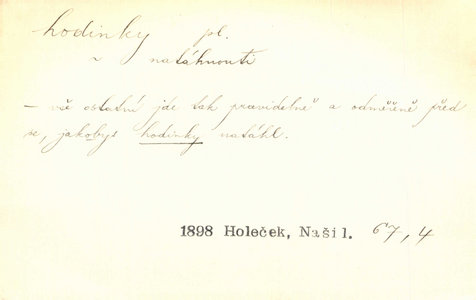 hodinky pl.
~ natáhnouti
– vše ostatní jde tak pravidelně a odměřeně před
se, jakobys hodinky natáhl.
1898 Holeček, Naši 1. 67, 4